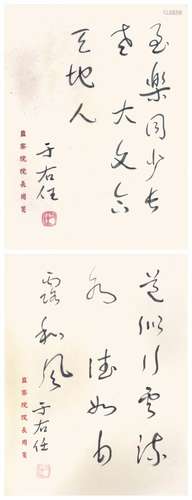 至樂同少長
老大文合
天地人
于右任
監察院院長用箋
道似行雲流
水德如甘
露和風
于右任
監察院院長用箋